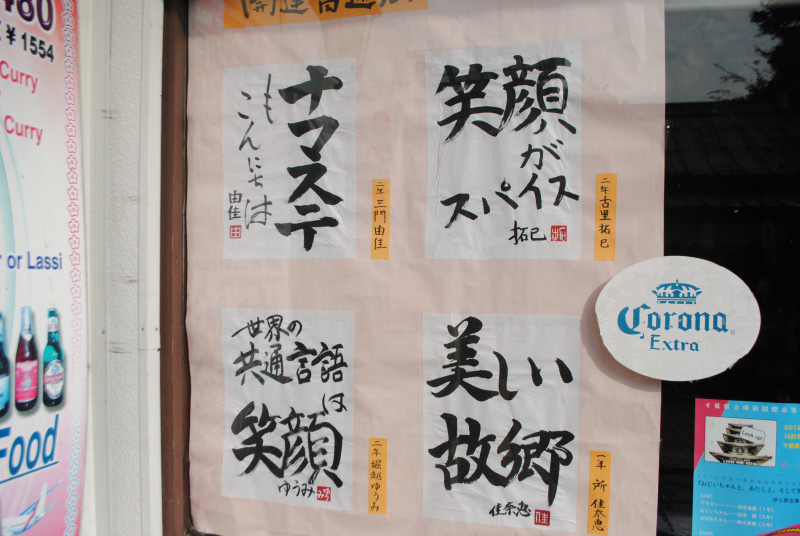 480
¥1554
Curry
Curry
or Lassi
Food
ナマステ
もこんにちは
由佳
二年 三門由佳
笑顔が
スパイス
拓巳
二年 古里拓巳
世界の
共通言語
は
笑顔
ゆうみ
二年 堀越ゆうみ
美しい
故郷
佳奈恵
一年 所佳奈恵
Corona
Extra
Look up!